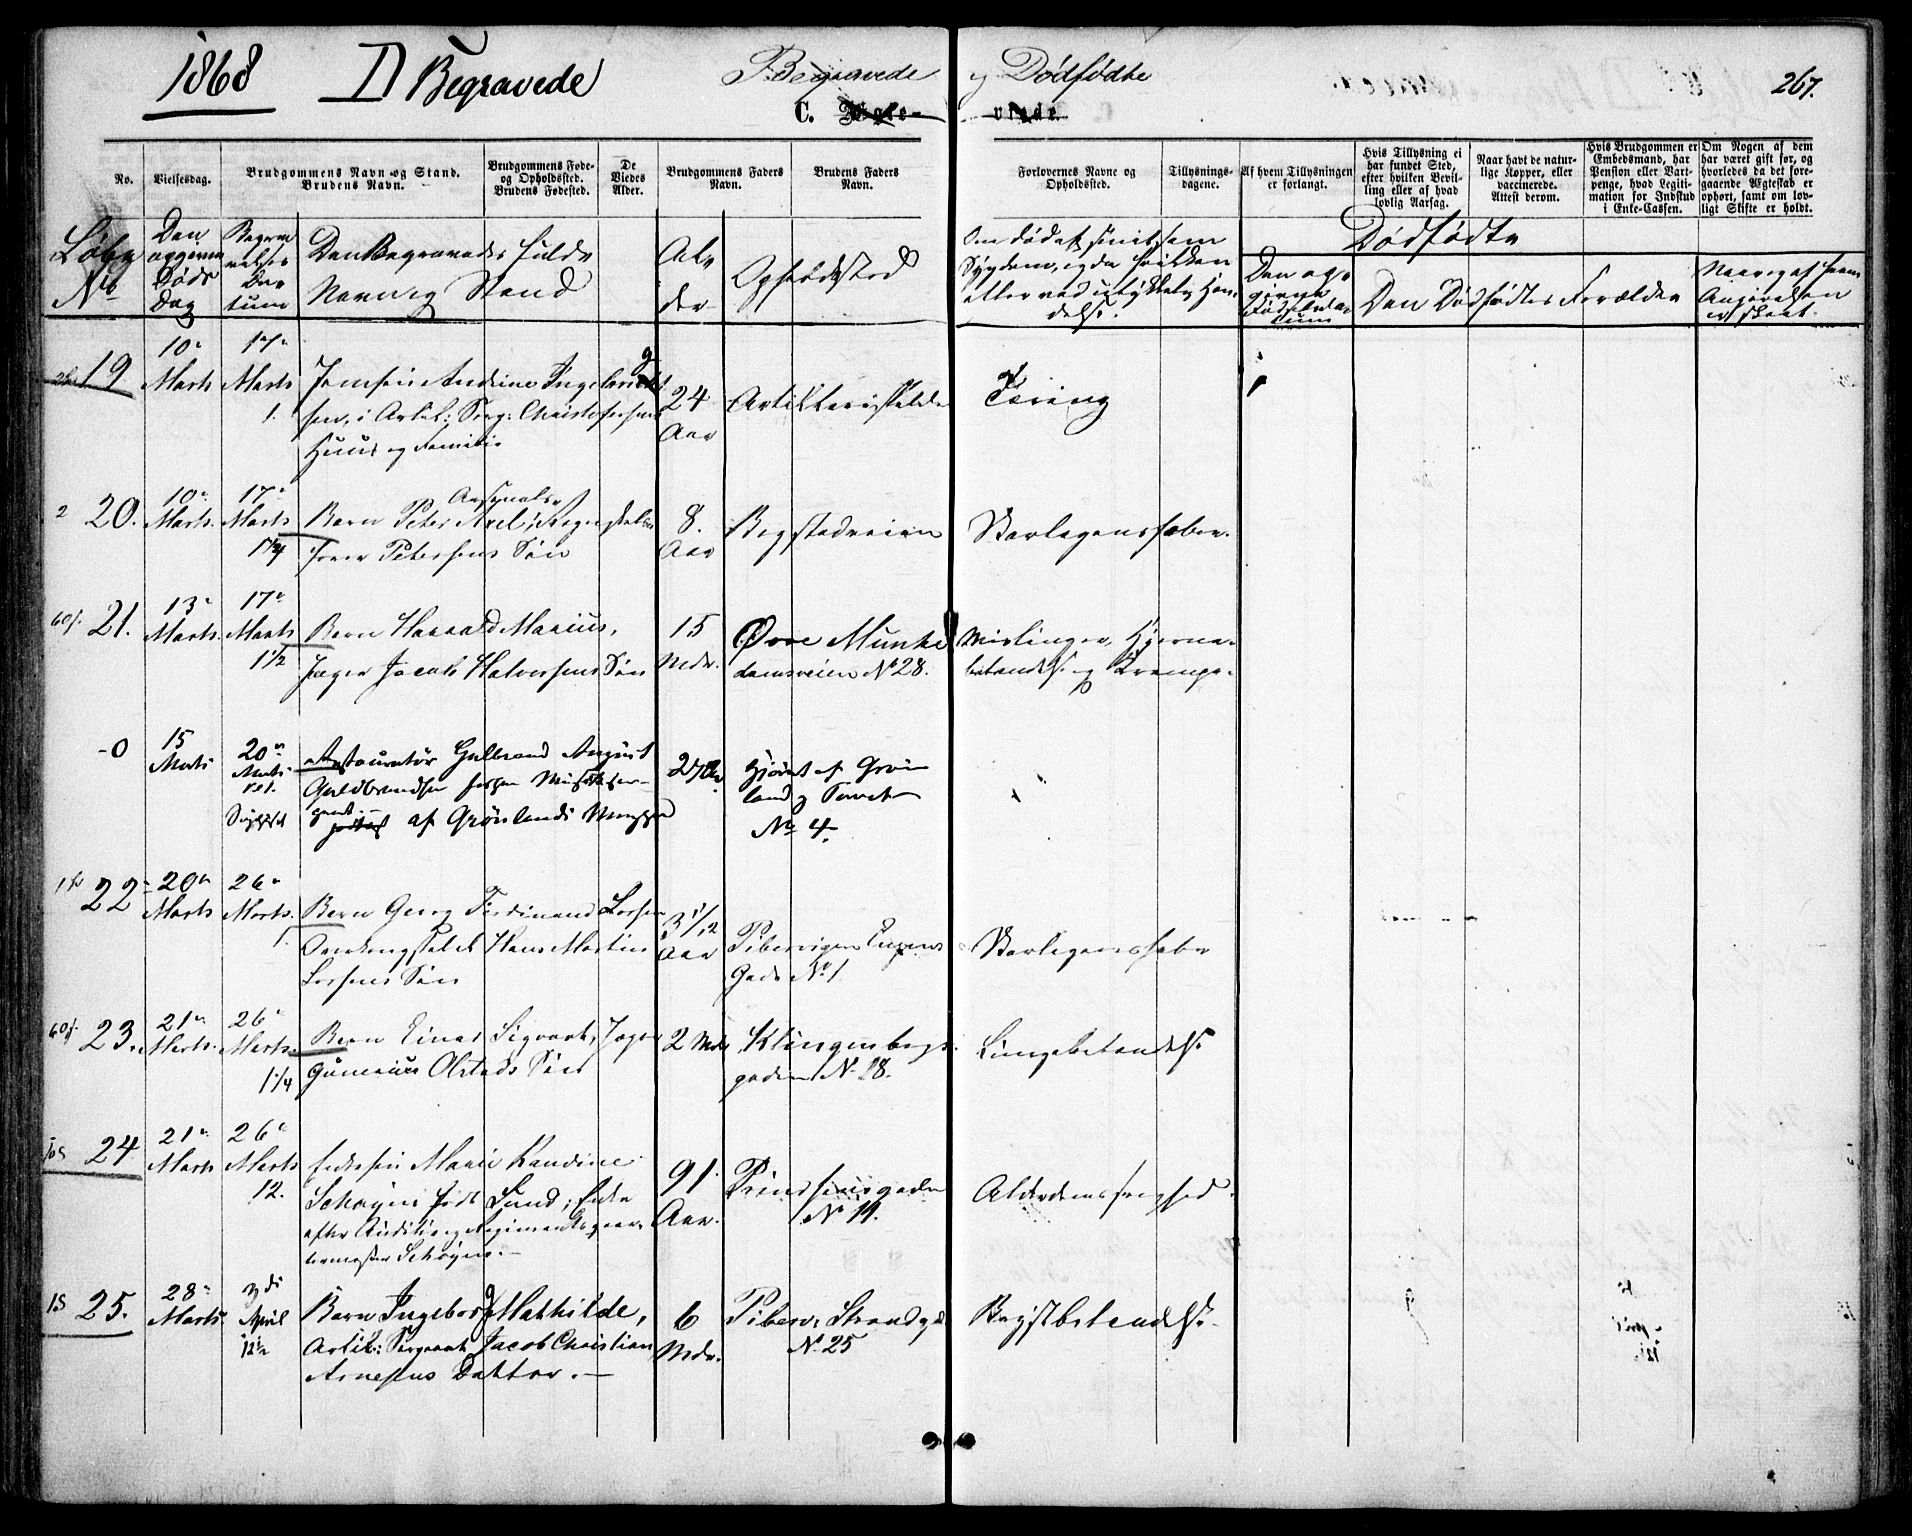 1868 D Begravede
Begravede og Dødfødte
267.
C. Egte-
viede.
No.
Vielsesdag.
Brudgommens Navn og Stand.
Brudens Navn.
Brudgommens Føde-
og Opholdssted.
Brudens Fødested.
De
Viedes
Alder.
Brudgommens Faders
Navn.
Brudens Faders
Navn.
Forlovernes Navne og
Opholdssted.
Tillysnings-
dagene.
Af hvem Tillysningen
er forlangt.
Hvis Tillysning ei
har fundet Sted,
efter hvilken Bevil-
ling eller af hvad
lovlig Aarsag.
Naar havt de natur-
lige Kopper, eller
vaccinerede.
Attest derom.
Hvis Brudgommen er
Embedsmand, har
Pension eller Vart-
penge, hvad Legiti-
mation for Indskud
i Enke-Cassen.
Om Nogen af dem
har været gift før, og
hvorledes da det fore-
gaaende Ægteskab er
ophørt, samt om lov-
ligt Skifte er holdt.
Løbe
No
Den
opgivne
Døds
Dag
Begra
velses
Da
tum
Den Begravedes fulde
Navn og Stand
Al
der
Opholdssted
Om død af smitsom
Sygdom, og da hvilken
eller ved ulykkelig Hæn
delse.
Dødfødte
Den op
givne
Fødselsda
tum
Den Dødfødtes Forældre
Naar og af hvem
Angivelsen
er skeet.
19
10de
Marts
17de
Marts
1.
Jomfru Andrine Ingeborg
sen, i Artil: Serg: Christofersens
Huus og Familie
24
Aar
Artillerigaden
Tæring
2
20.
10de
Marts.
17de
Marts
1 1/4
Barn Peter Axel, Arsenals
Petersens Søn
8.
Aar
Bogstadveien
Skarlagensfeber.
60/.
21.
13de
Marts.
17de
Marts
1 1/2
Barn Harald Marius,
Jæger Jacob Halvorsens Søn
15
Mdr.
Øvre Munke
damsveien No 28.
Meslinger, Hjerne
betændelse og Krampe.
- 0
15
Marts
20de
Marts
Restauratør Gulbrand August
Guldbrandsen
af Grønlands Menighed
27 Aar
Hjørnet af Grøn
land og Torvet
No 4.
22
20de
Marts
26de
Marts.
1
Barn Georg Ferdinand Larsen
Hans Martin
Larsens Søn
3 1/12
Aar
Pibervigen Enger
Gade No 1
Skarlagensfeber
60/.
23.
21de
Marts.
26de
Marts.
1 1/4
Barn Einar Sigvart, Jæger
Gunerius Olstads Søn
2 Mdr
Klingenbergs
gaden No 28.
Lungebetændelse
24
21de
Marts
26de
Marts
12.
Enkefru Marie Randine
Schøyen født Lund; Enke
efter Auditør og Regimentsqvar
termester Schøyen. —
91.
Aar.
Prindsensgaden
No 11.
Alderdomssvaghed.
15
25.
28de
Marts
3die
April
12 1/2
Barn Ingeborg Mathilde,
Artil: Sergeant Jacob Christian
Arnesens Datter. —
6
Mdr.
Piberv: Strandgd
No 25
Brystbetændelse.